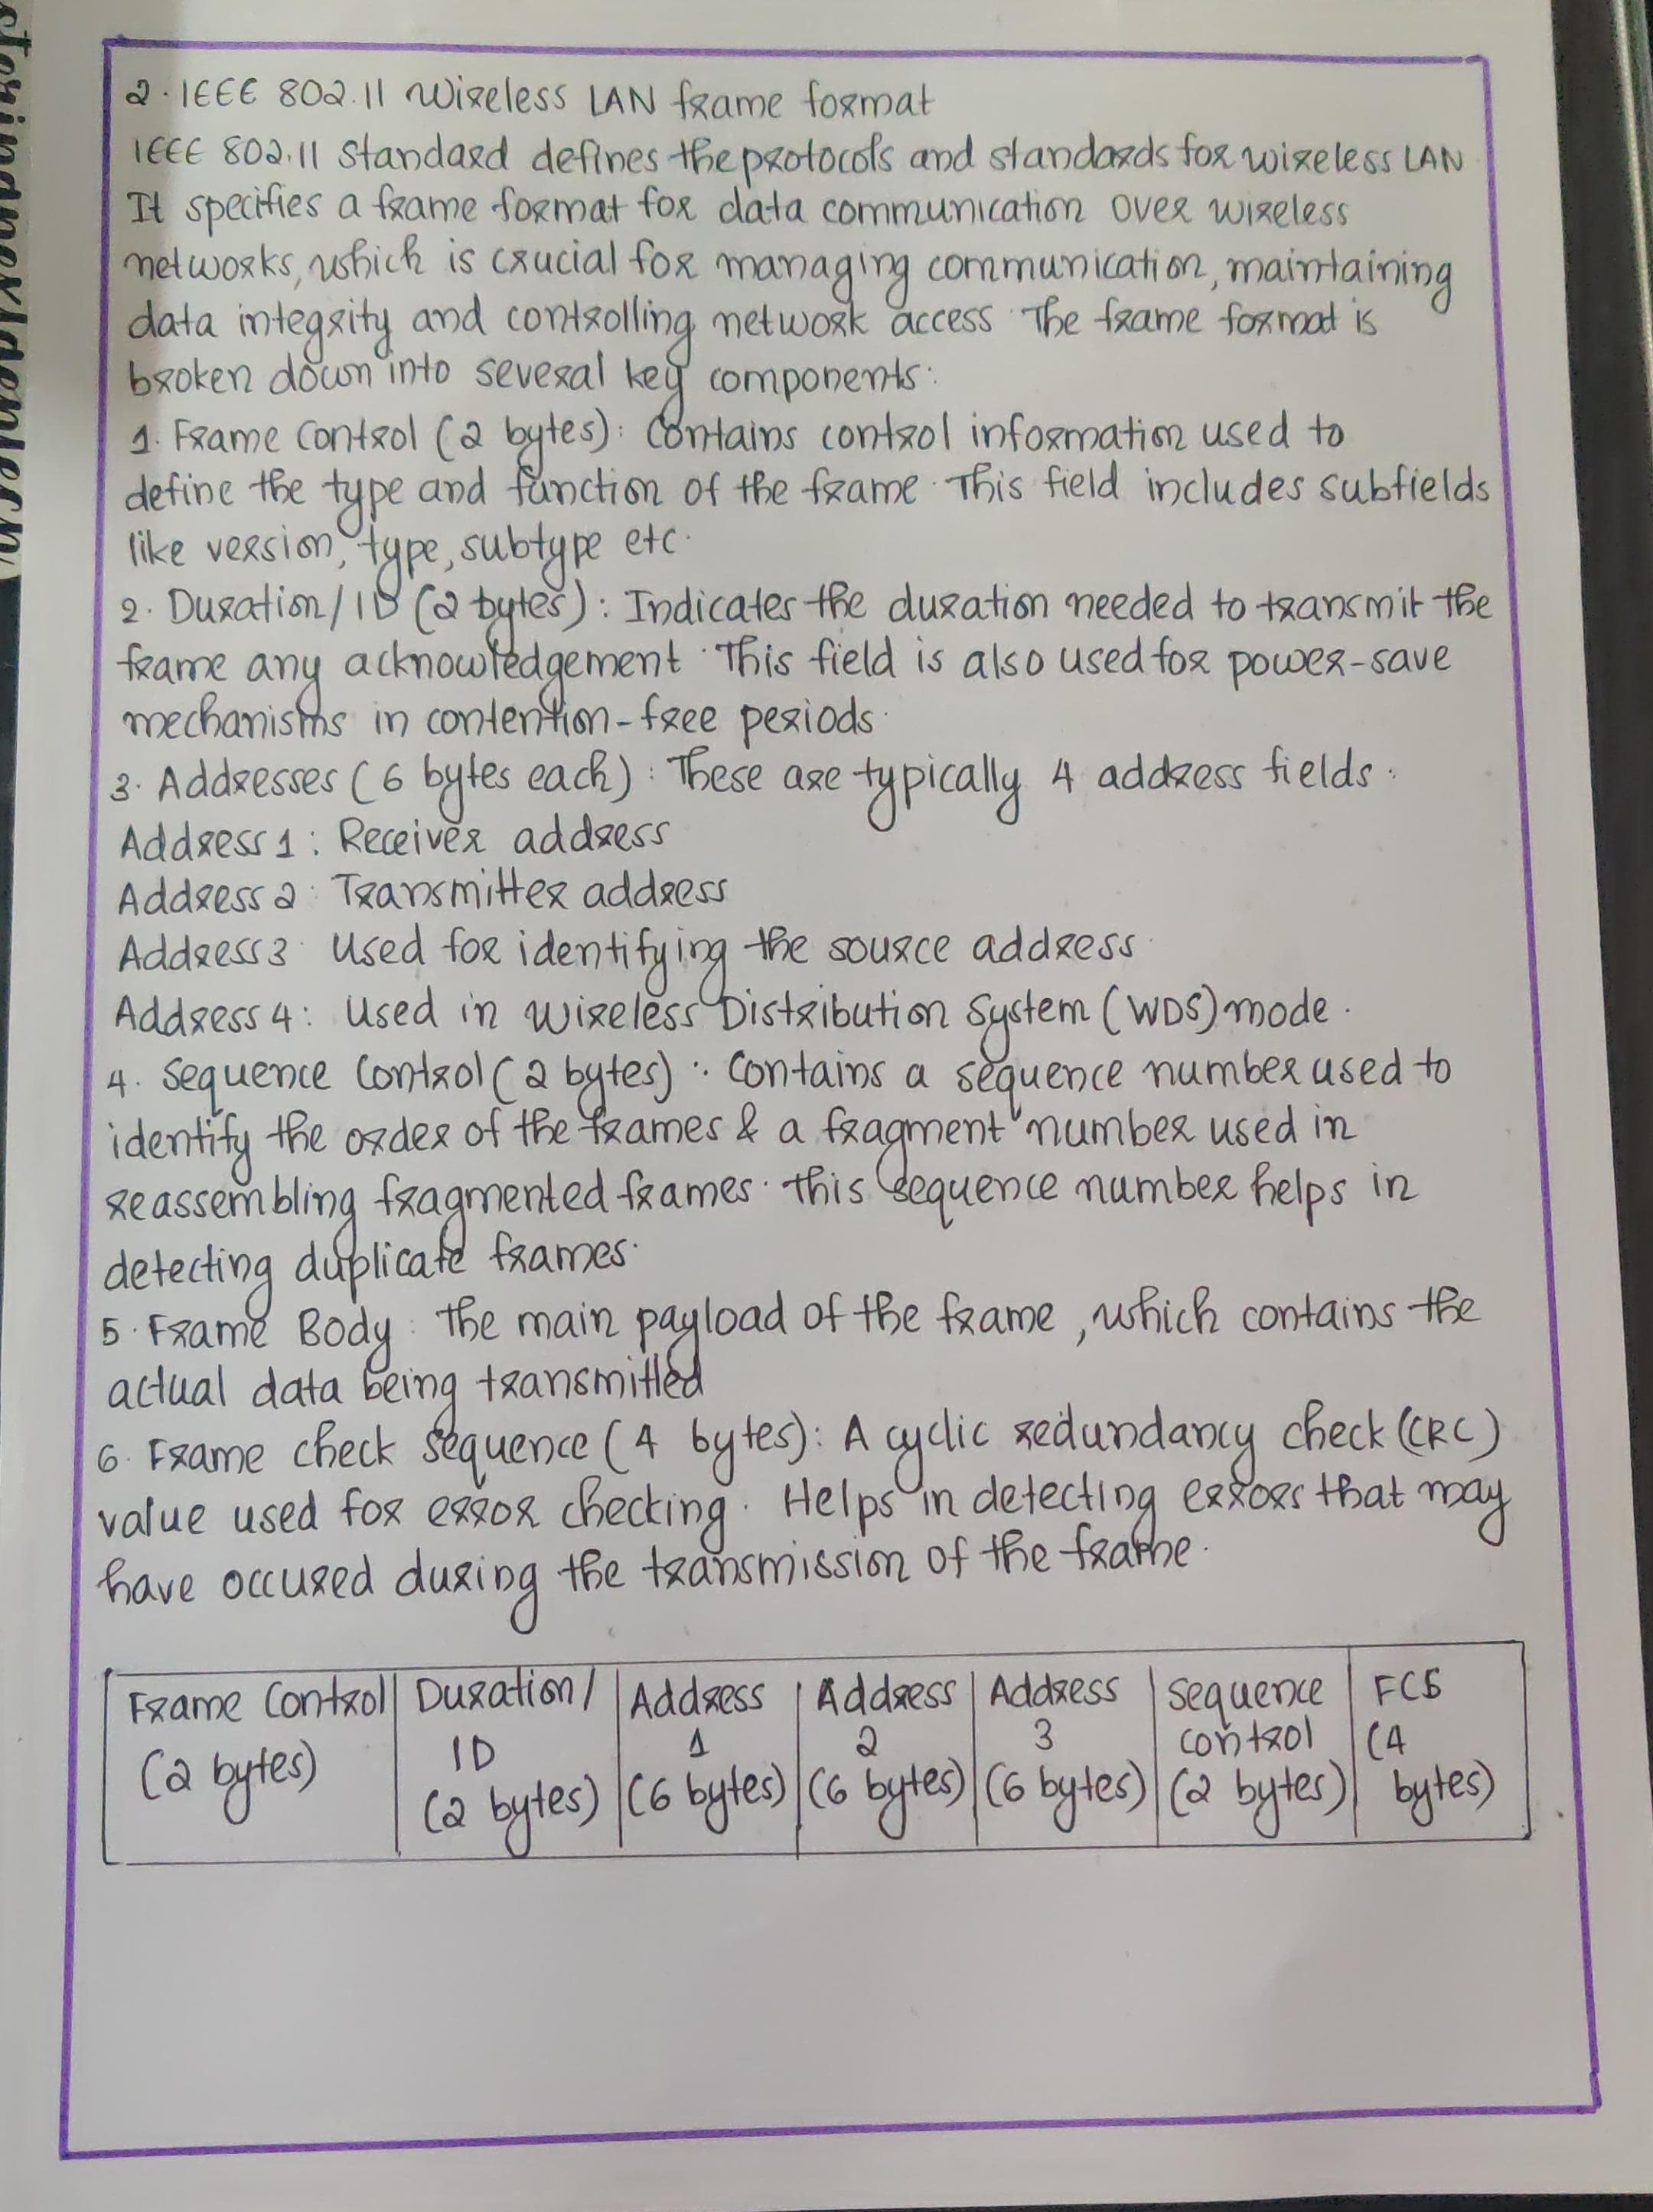 2. IEEE 802.11 Wireless LAN frame format
IEEE 802.11 Standard defines the protocols and standards for wireless LAN
It specifies a frame format for data communication over wireless
networks, which is crucial for managing communication, maintaining
data integrity and controlling network access. The frame format is
broken down into several key components:
1. Frame Control (2 bytes): Contains control information used to
define the type and function of the frame. This field includes subfields
like version, type, subtype etc.
2. Duration/ID (2 bytes): Indicates the duration needed to transmit the
frame any acknowledgement. This field is also used for power-save
mechanisms in contention-free periods.
3. Addresses (6 bytes each): These are typically 4 address fields:
Address 1: Receiver address
Address 2: Transmitter address
Address 3: Used for identifying the source address.
Address 4: Used in Wireless Distribution System (WDS) mode.
4. Sequence Control (2 bytes): Contains a sequence number used to
identify the order of the frames & a fragment number used in
reassembling fragmented frames. This sequence number helps in
detecting duplicate frames.
5. Frame Body: The main payload of the frame, which contains the
actual data being transmitted
6. Frame check sequence (4 bytes): A cyclic redundancy check (CRC)
value used for error checking. Helps in detecting errors that may
have occured during the transmission of the frame.
Frame Control (2 bytes)
Duration/ ID (2 bytes)
Address 1 (6 bytes)
Address 2 (6 bytes)
Address 3 (6 bytes)
Sequence control (2 bytes)
FCS (4 bytes)